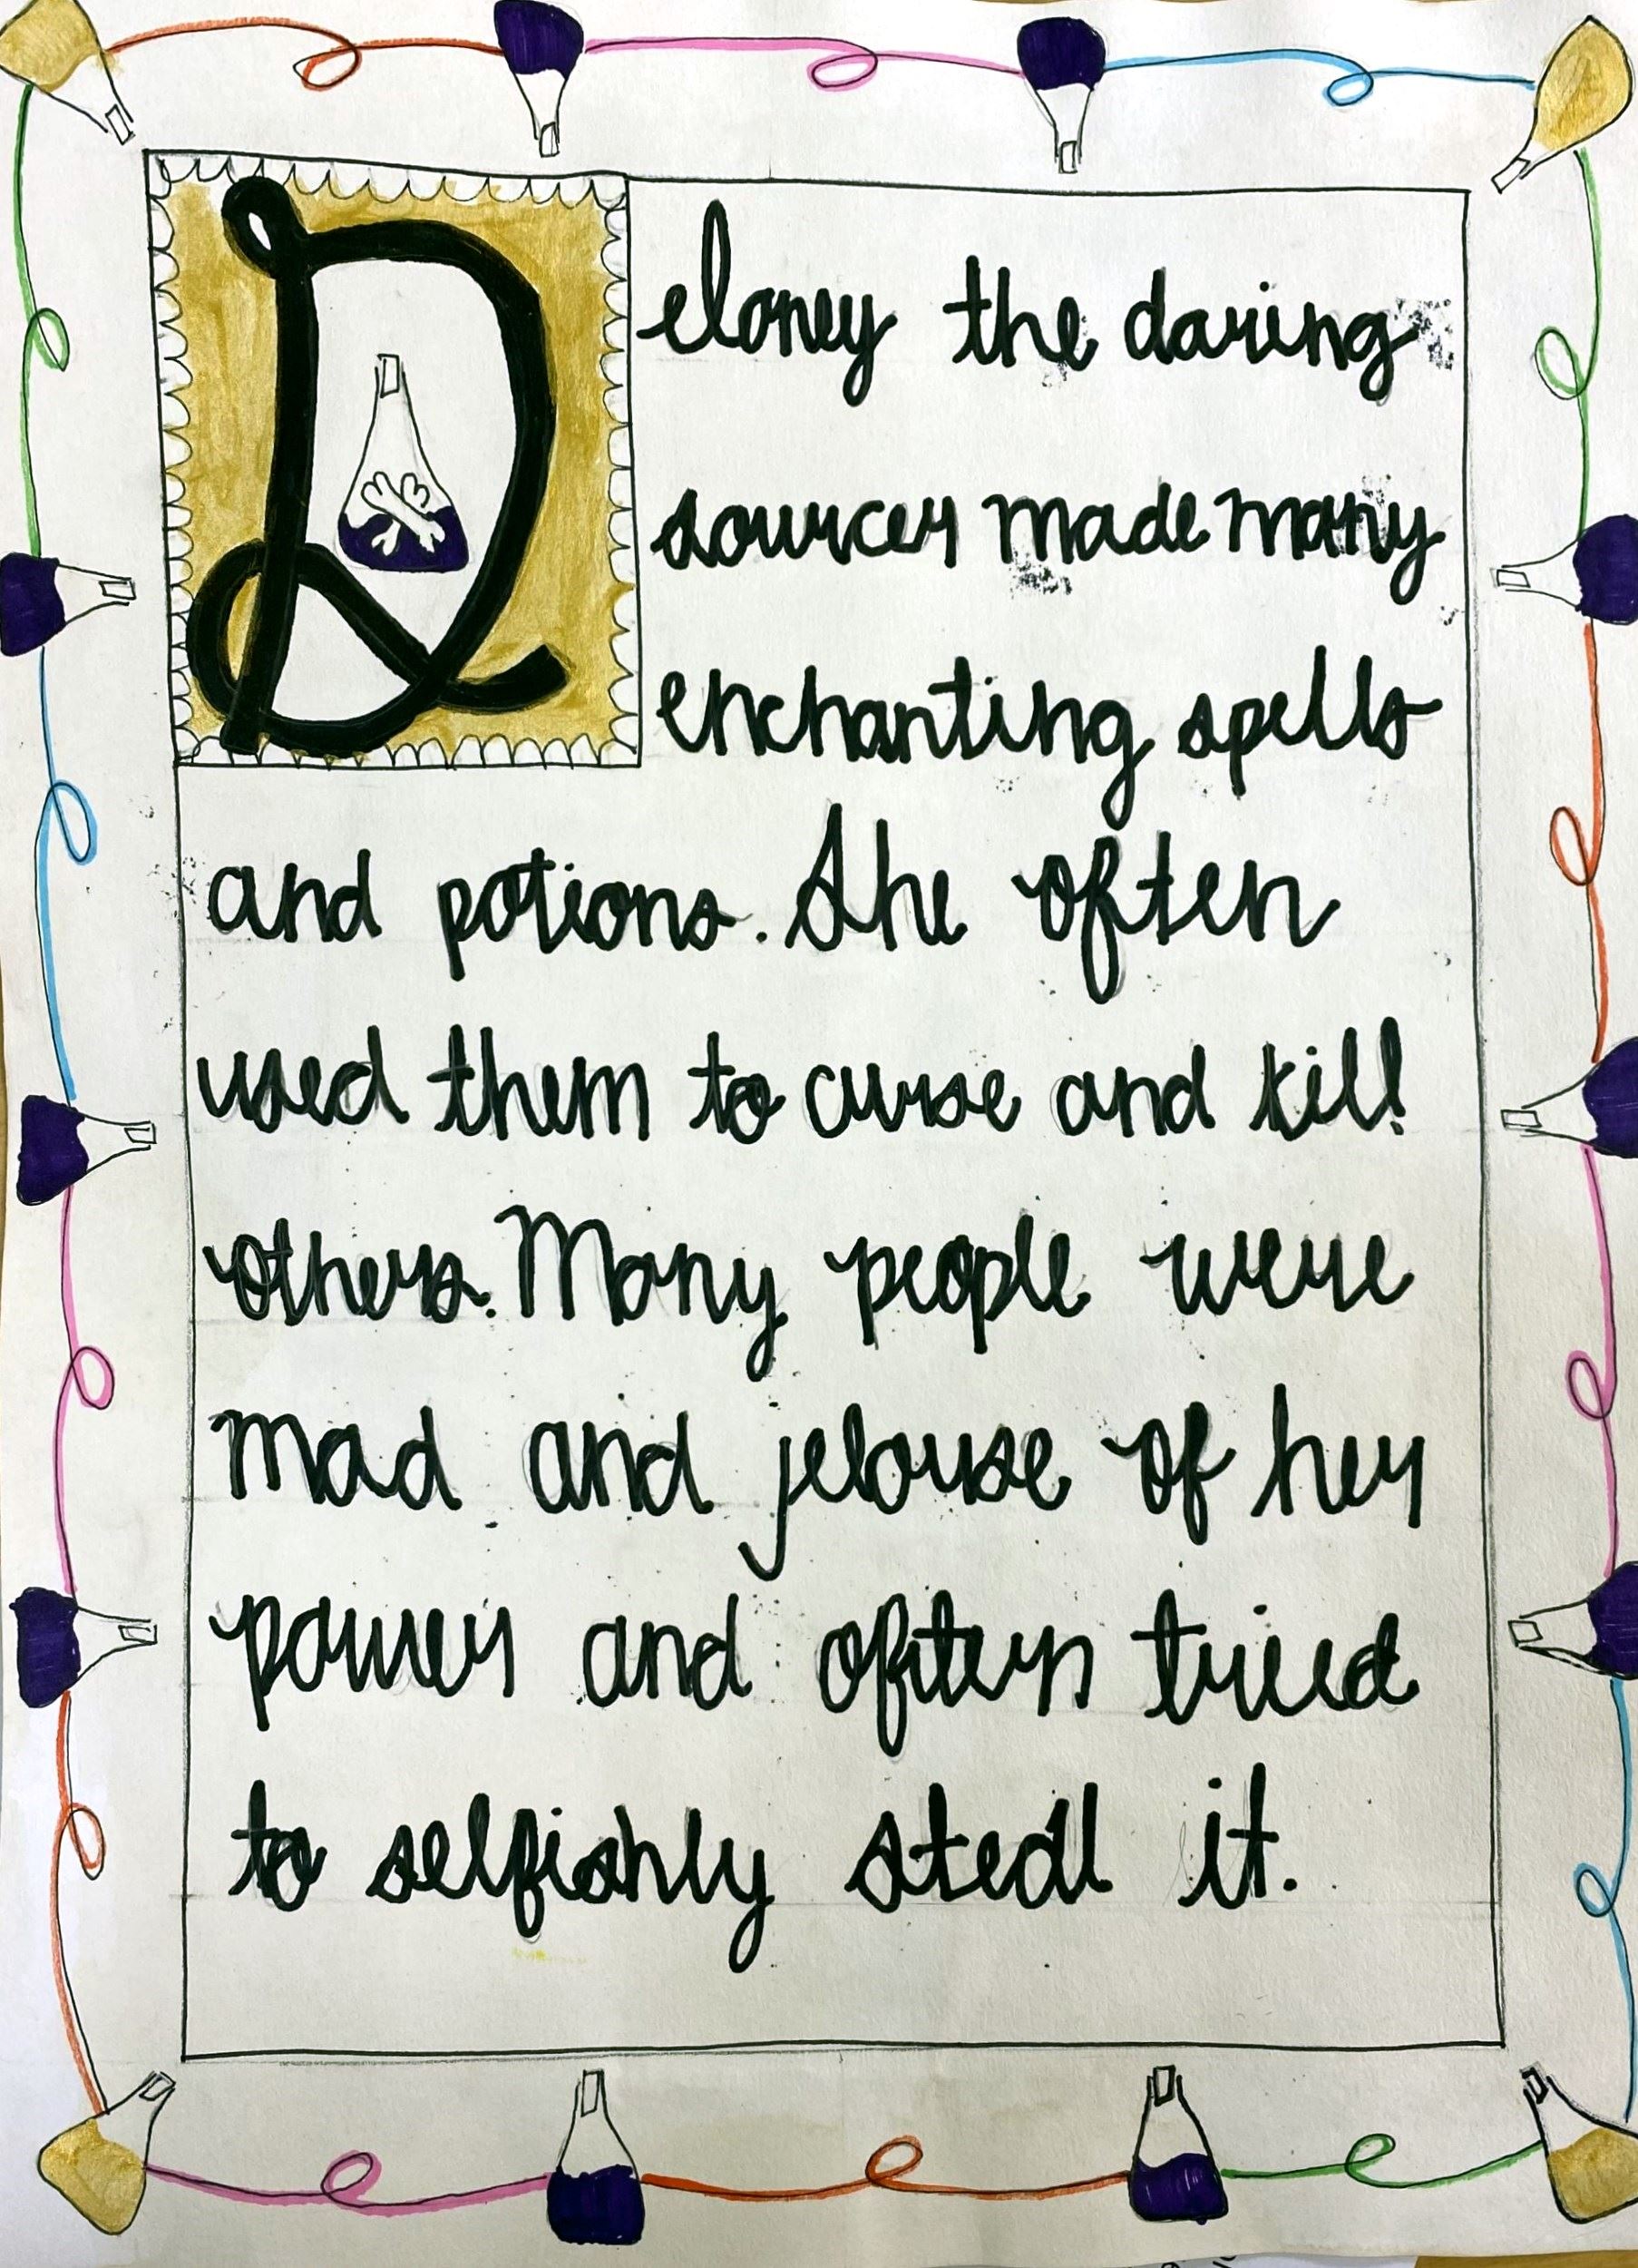 Deloney the daring
sourcer made many
enchanting spells
and potions. She often
used them to curse and kill
others. Many people were
mad and jelouse of her
power and often tried
to selfishly steal it.